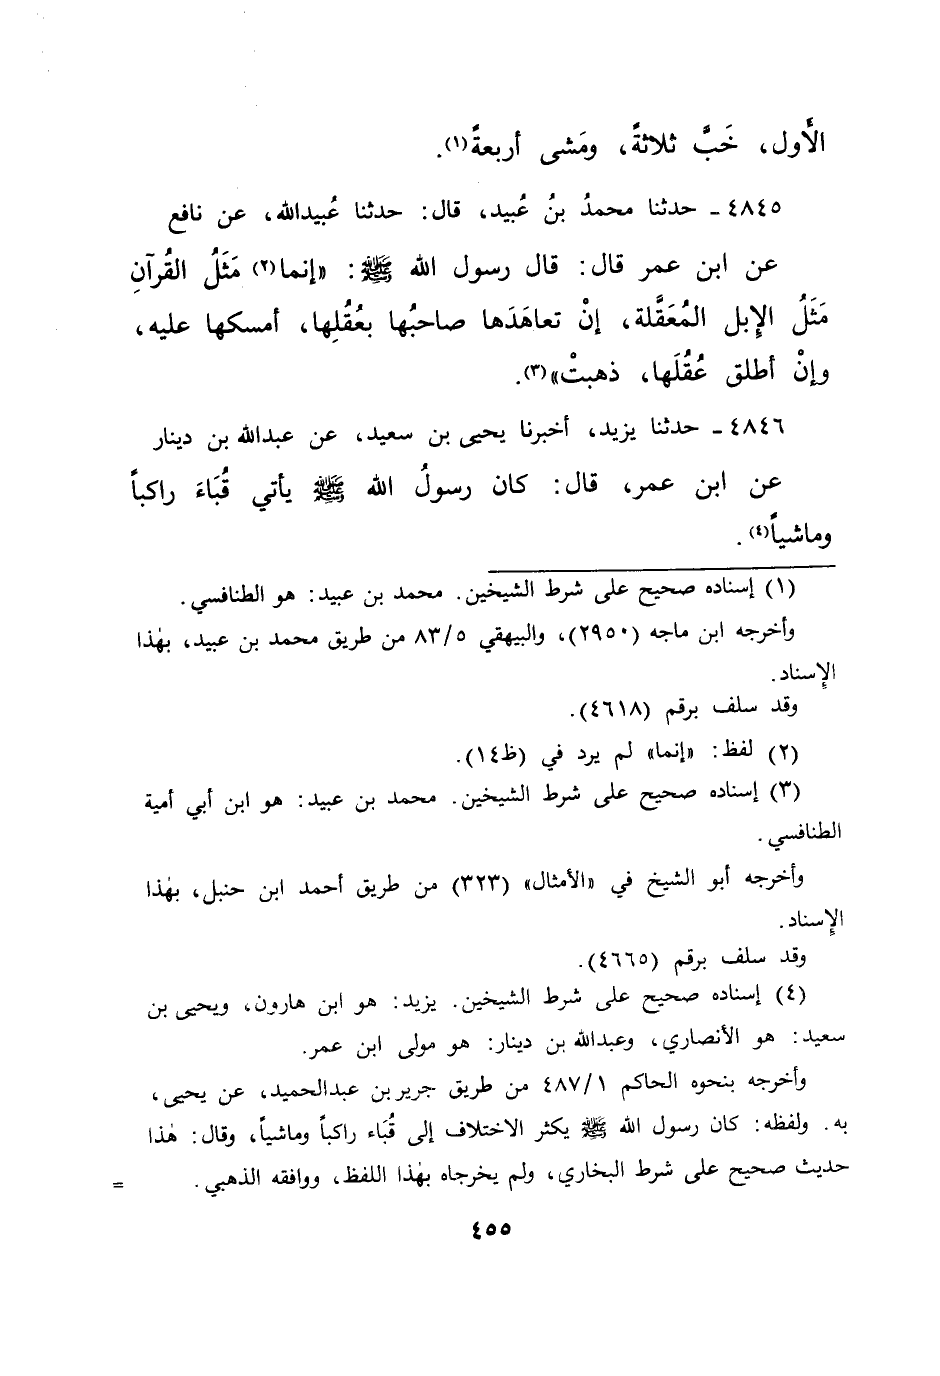 الأَول، خَبَّ ثلاثةً، ومَشى أربعةً(١).
٤٨٤٥ ـ حدثنا محمدُ بنُ عُبيد، قال: حدثنا عُبيدالله، عن نافع
عن ابن عمر قال: قال رسول الله ﷺ: «إنما(٢) مَثَلُ القُرآنِ
مَثَلُ الإِبل المُعَقَّلة، إنْ تعاهَدَها صاحبُها بعُقُلِها، أمسكها عليه،
وإنْ أطلق عُقُلَها، ذهبتْ»(٣).
٤٨٤٦ ـ حدثنا يزيد، أخبرنا يحيى بن سعيد، عن عبدالله بن دينار
عن ابن عمر، قال: كان رسولُ الله ﷺ يأتي قُبَاءَ راكباً
وماشياً(٤).
(١) إسناده صحيح على شرط الشيخين. محمد بن عبيد: هو الطنافسي.
وأخرجه ابن ماجه (٢٩٥٠)، والبيهقي ٨٣/٥ من طريق محمد بن عبيد، بهٰذا
الإِسناد.
وقد سلف برقم (٤٦١٨).
(٢) لفظ: «إنما» لم يرد في (ظ١٤).
(٣) إسناده صحيح على شرط الشيخين. محمد بن عبيد: هو ابن أبي أمية
الطنافسي.
وأخرجه أبو الشيخ في «الأمثال» (٣٢٣) من طريق أحمد ابن حنبل، بهٰذا
الإِسناد.
وقد سلف برقم (٤٦٦٥).
(٤) إسناده صحيح على شرط الشيخين. يزيد: هو ابن هارون، ويحيى بن
سعيد: هو الأنصاري، وعبدالله بن دينار: هو مولى ابن عمر.
وأخرجه بنحوه الحاكم ٤٨٧/١ من طريق جرير بن عبدالحميد، عن يحيى،
به. ولفظه: كان رسول الله ﷺ يكثر الاختلاف إلى قُبَاء راكباً وماشياً، وقال: هٰذا
حديث صحيح على شرط البخاري، ولم يخرجاه بهٰذا اللفظ، ووافقه الذهبي. =
٤٥٥